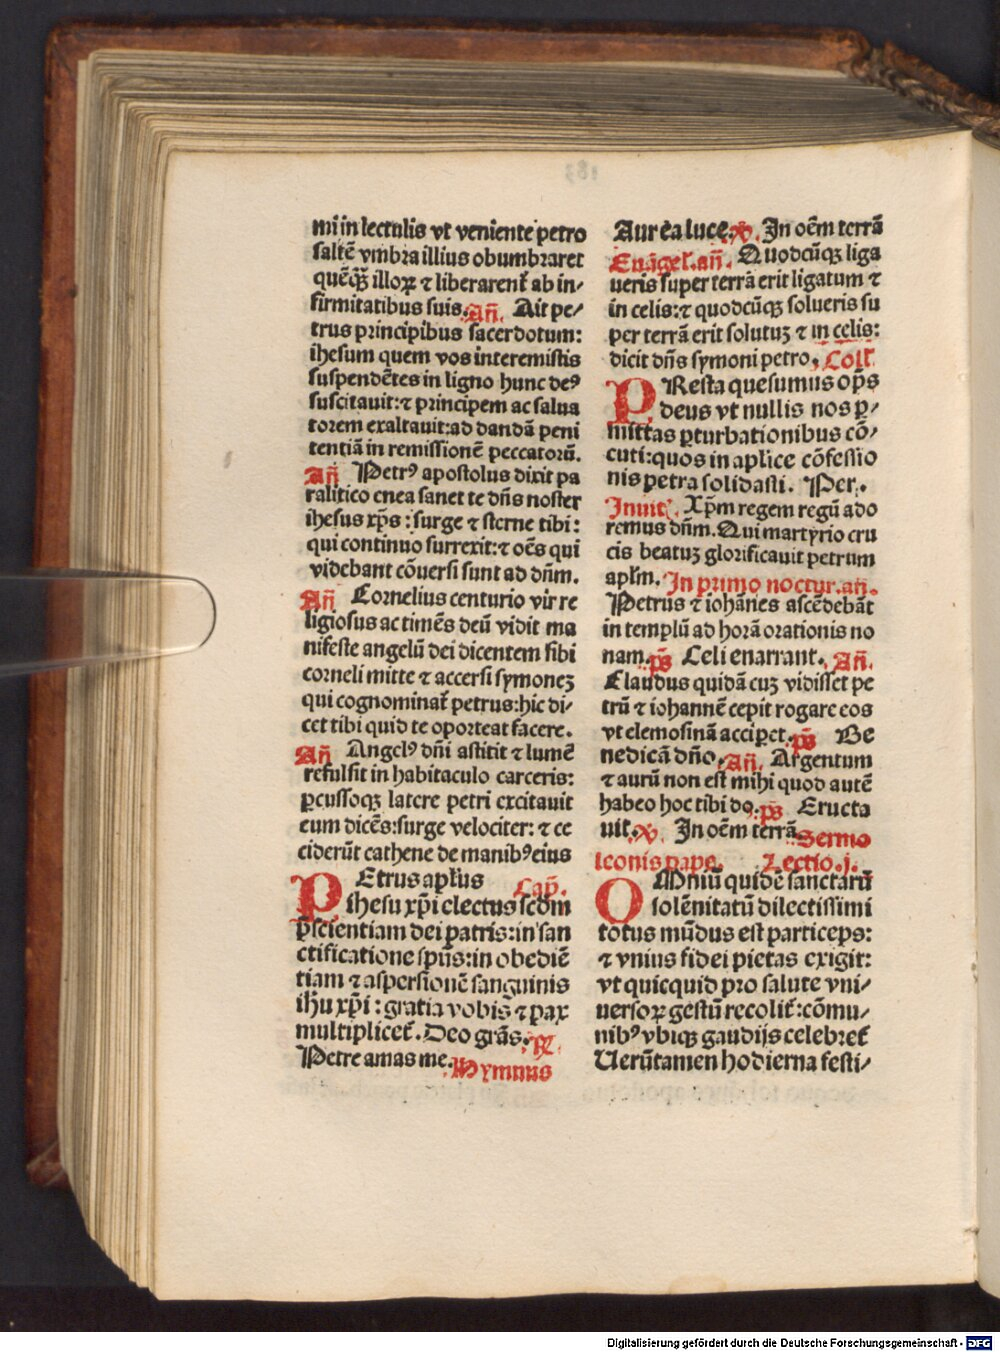 mi in lectulis vt veniente petro
saltē vmbra illius obumbraret
quēq̄ꝫ illoꝝ ⁊ liberarent᷑ ab in⸗
firmitatibus suis. Añ. Ait pe⸗
trus principibus sacerdotum:
ihesum quem vos interemistis
suspendētes in ligno hunc deꝰ
suscitauit:⁊ principem ac salua
torem exaltauit:ad dandā peni
tentiā in remissionē peccatorū.
Añ Petrꝰ apostolus dixit pa
ralitico enea sanet te dñs noster
ihesus xp̄s : surge ⁊ sterne tibi :
qui continuo surrexit:⁊ oēs qui
videbant cōuersi sunt ad dñm.
Añ Cornelius centurio vir re
ligiosus ac timēs deū vidit ma
nifeste angelū dei dicentem sibi
corneli mitte ⁊ accersi symoneꝫ
qui cognominat᷑ petrus:hic di⸗
cet tibi quid te oporteat facere.
Añ Angelꝰ dñi astitit ⁊ lumē
refulsit in habitaculo carceris:
ꝑcussoqꝫ latere petri excitauit
eum dicēs:surge velociter: ⁊ ce
ciderūt cathene de manibꝰ eius
PEtrus apl'us Cap̄.
ihesu xp̄i electus scdm
p̄scientiam dei patris:in san
ctificatione spūs:in obediē
tiam ⁊ aspersionē sanguinis
ihu xp̄i : gratia vobis ⁊ pax
multiplicet᷑. Deo grās. ꝶ.
Petre amas me. Hymnus
Aurea luce. ℣. In oēm terrā
Euāgel'. añ. Quodcūqꝫ liga
ueris super terrā erit ligatum ⁊
in celis:⁊ quodcūqꝫ solueris su
per terrā erit solutuꝫ ⁊ in celis:
dicit dñs symoni petro. Coll'.
PResta quesumus op̄s
deus vt nullis nos ꝑ⸗
mittas ꝑturbationibus cō⸗
cuti:quos in aplice cōfessio
nis petra solidasti. Per.
Inuit'. Xp̄m regem regū ado
remus dñm. Qui martyrio cru
cis beatuꝫ glorificauit petrum
apl'm. In primo noctur. añ.
Petrus ⁊ iohānes ascēdebāt
in templū ad horā orationis no
nam. p̄s Celi enarrant. Añ.
Claudus quidā cuꝫ vidisset pe
trū ⁊ iohannē cepit rogare eos
vt elemosinā acciperet. p̄s Be
nedicā dño. Añ. Argentum
⁊ aurū non est mihi quod autē
habeo hoc tibi do. p̄s Eructa
uit. ℣. In oēm terrā Sermo
leonis pape. Lectio .j.
OMniū quidē sanctarū
solēnitatū dilectissimi
totus mūdus est particeps:
⁊ vnius fidei pietas exigit:
vt quicquid pro salute vni⸗
uersoꝝ gestū recolit᷑:cōmu⸗
nibꝰ vbiqꝫ gaudijs celebret᷑
Uerūtamen hodierna festi⸗
Digitalisierung gefördert durch die Deutsche Forschungsgemeinschaft - DFG